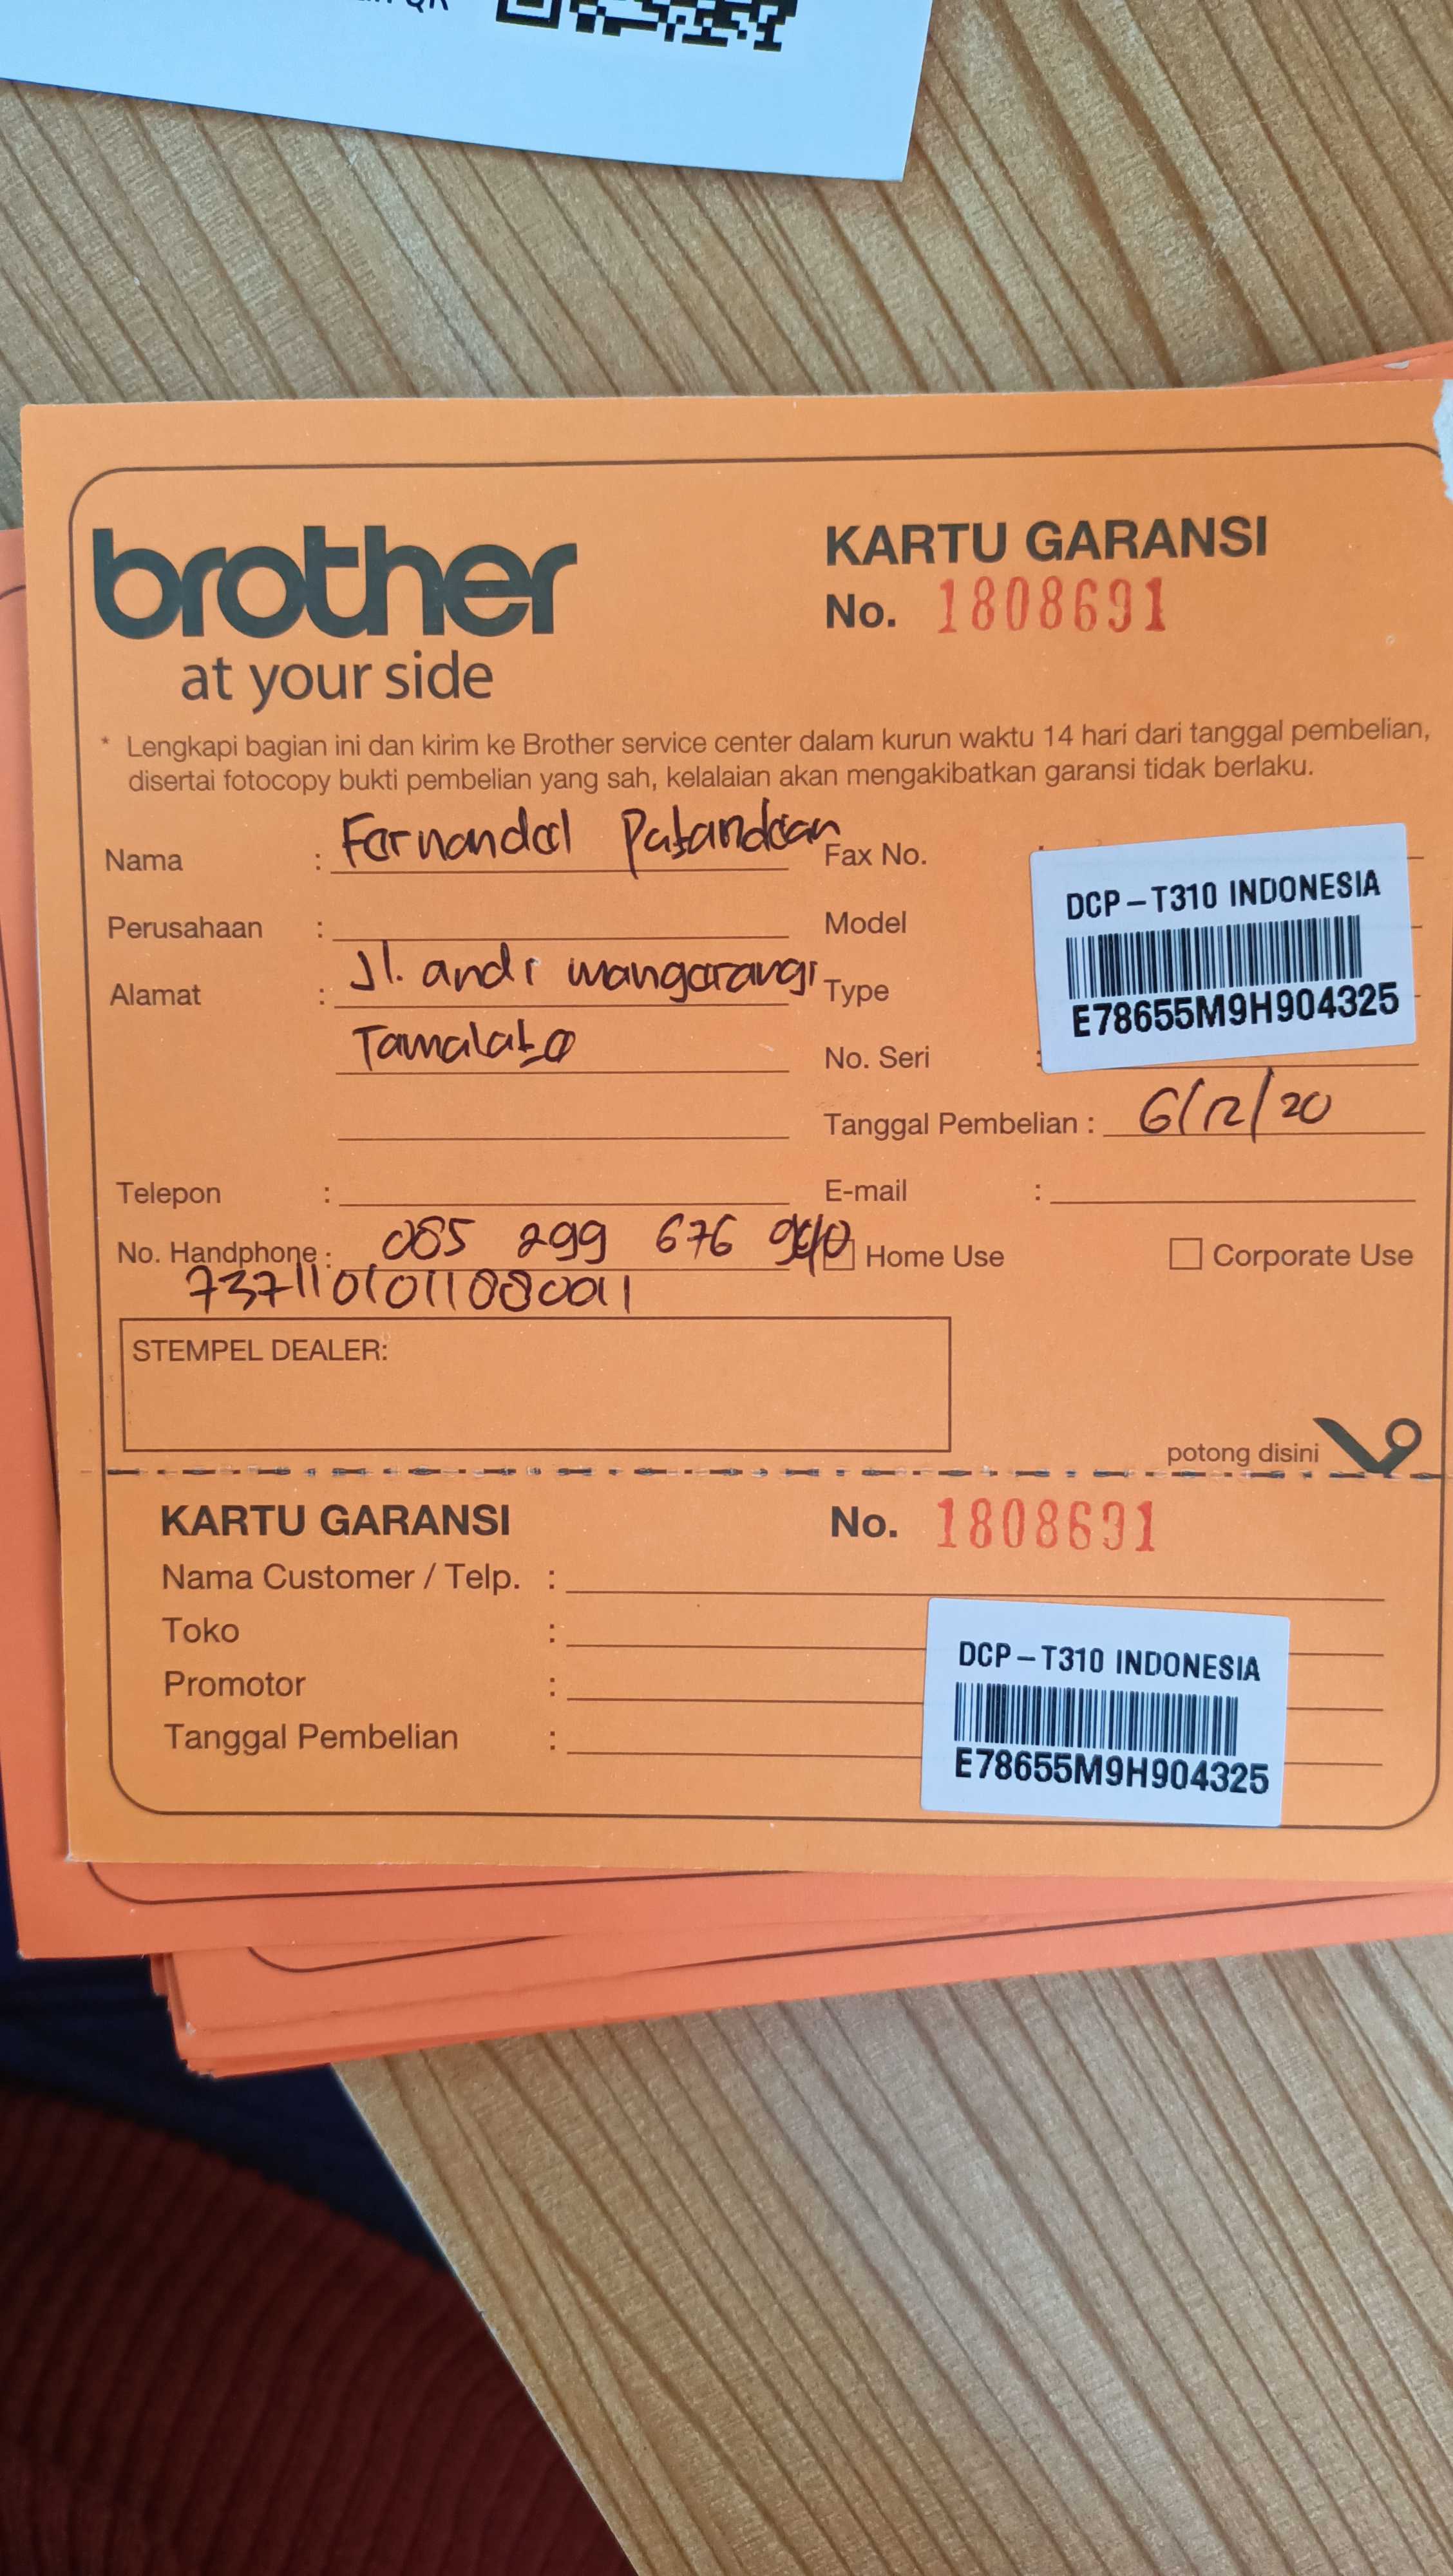 brother
at your side
KARTU GARANSI
No. 1808691
* Lengkapi bagian ini dan kirim ke Brother service center dalam kurun waktu 14 hari dari tanggal pembelian,
disertai fotocopy bukti pembelian yang sah, kelalaian akan mengakibatkan garansi tidak berlaku.
Nama :
Perusahaan :
Alamat : Jl. andi mangarangi
Telepon :
No. Handphone : 085 299 676
Fax No. :
Model
Type
No. Seri :
DCP-T310 INDONESIA
E78655M9H904325
Tanggal Pembelian : 6/12/20
E-mail :
Home Use
Corporate Use
STEMPEL DEALER:
potong disini
KARTU GARANSI
No. 1808691
Nama Customer / Telp. :
Toko :
Promotor :
Tanggal Pembelian :
DCP-T310 INDONESIA
E78655M9H904325